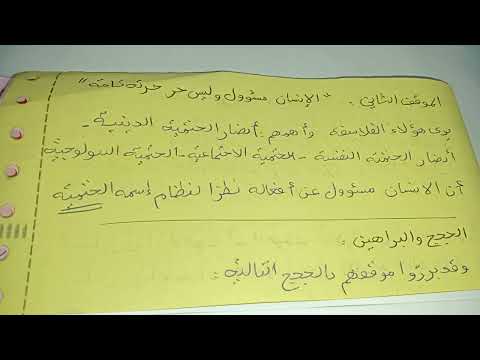 الموقف الثاني: "الإنسان مسؤول وليس حر حرية تامة"
يرى هؤلاء الفلاسفة وأهمهم: أنصار الحتمية الدينية -
أنصار الحتمية النفسية - الحتمية الاجتماعية - الحتمية البيولوجية
أن الانسان مسؤول عن أفعاله نظرا لنظام إسمه الحتمية
الحجج والبراهين:
وقد برروا موقفهم بالحجج التالية: